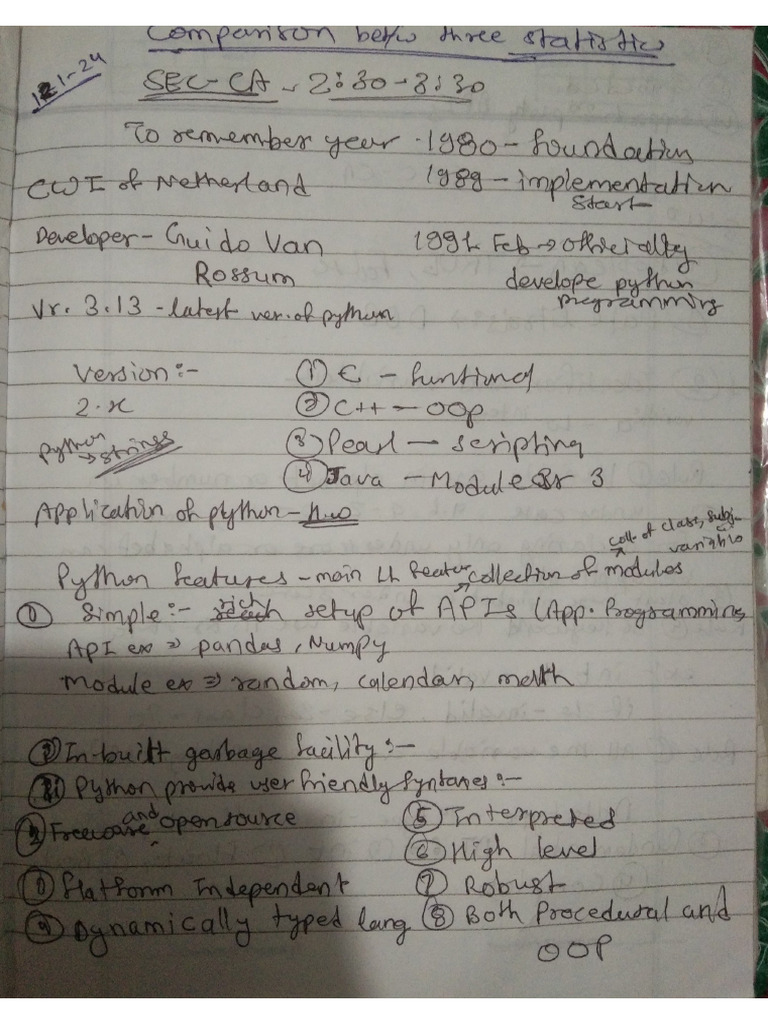 Comparison betw three statistics
1-24
SEC-CA - 2:30-3:30
To remember year · 1980 - foundation
CWI of Netherland
1989 - implementation
start
Developer - Guido Van
Rossum
1991 Feb → officially
develope python
programming
Vr. 3.13 - latest ver. of python
Version :-
2.x
python
→ strings
① C - functional
② C++ - OOP
③ Pearl - scripting
④ Java - Module 3
Application of python - H.w
Python features - main feature collection of modules
coll. of class, subj.
variable
① Simple :- rich setup of APIs (App. Programming
API ex ⇒ pandas, Numpy
Module ex ⇒ random, calendar, math
In-built garbage facility :-
Python provide user friendly Syntaxes :-
Freeware and open source
Platform Independent
Dynamically typed lang
⑤ Interpreted
⑥ High level
⑦ Robust
⑧ Both Procedural and
OOP